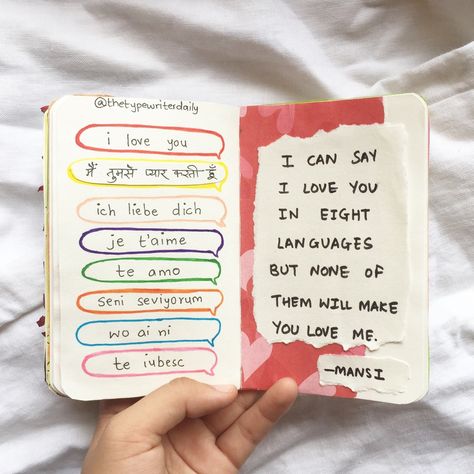 @thetypewriterdaily
i love you
मैं तुमसे प्यार करती हूँ
ich liebe dich
je t'aime
te amo
seni seviyorum
wo ai ni
te iubesc
I CAN SAY
I LOVE YOU
IN EIGHT
LANGUAGES
BUT NONE OF
THEM WILL MAKE
YOU LOVE ME.
—MANSI